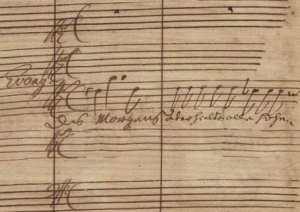 Evang
Des Morgens aber hielten alle Hohe